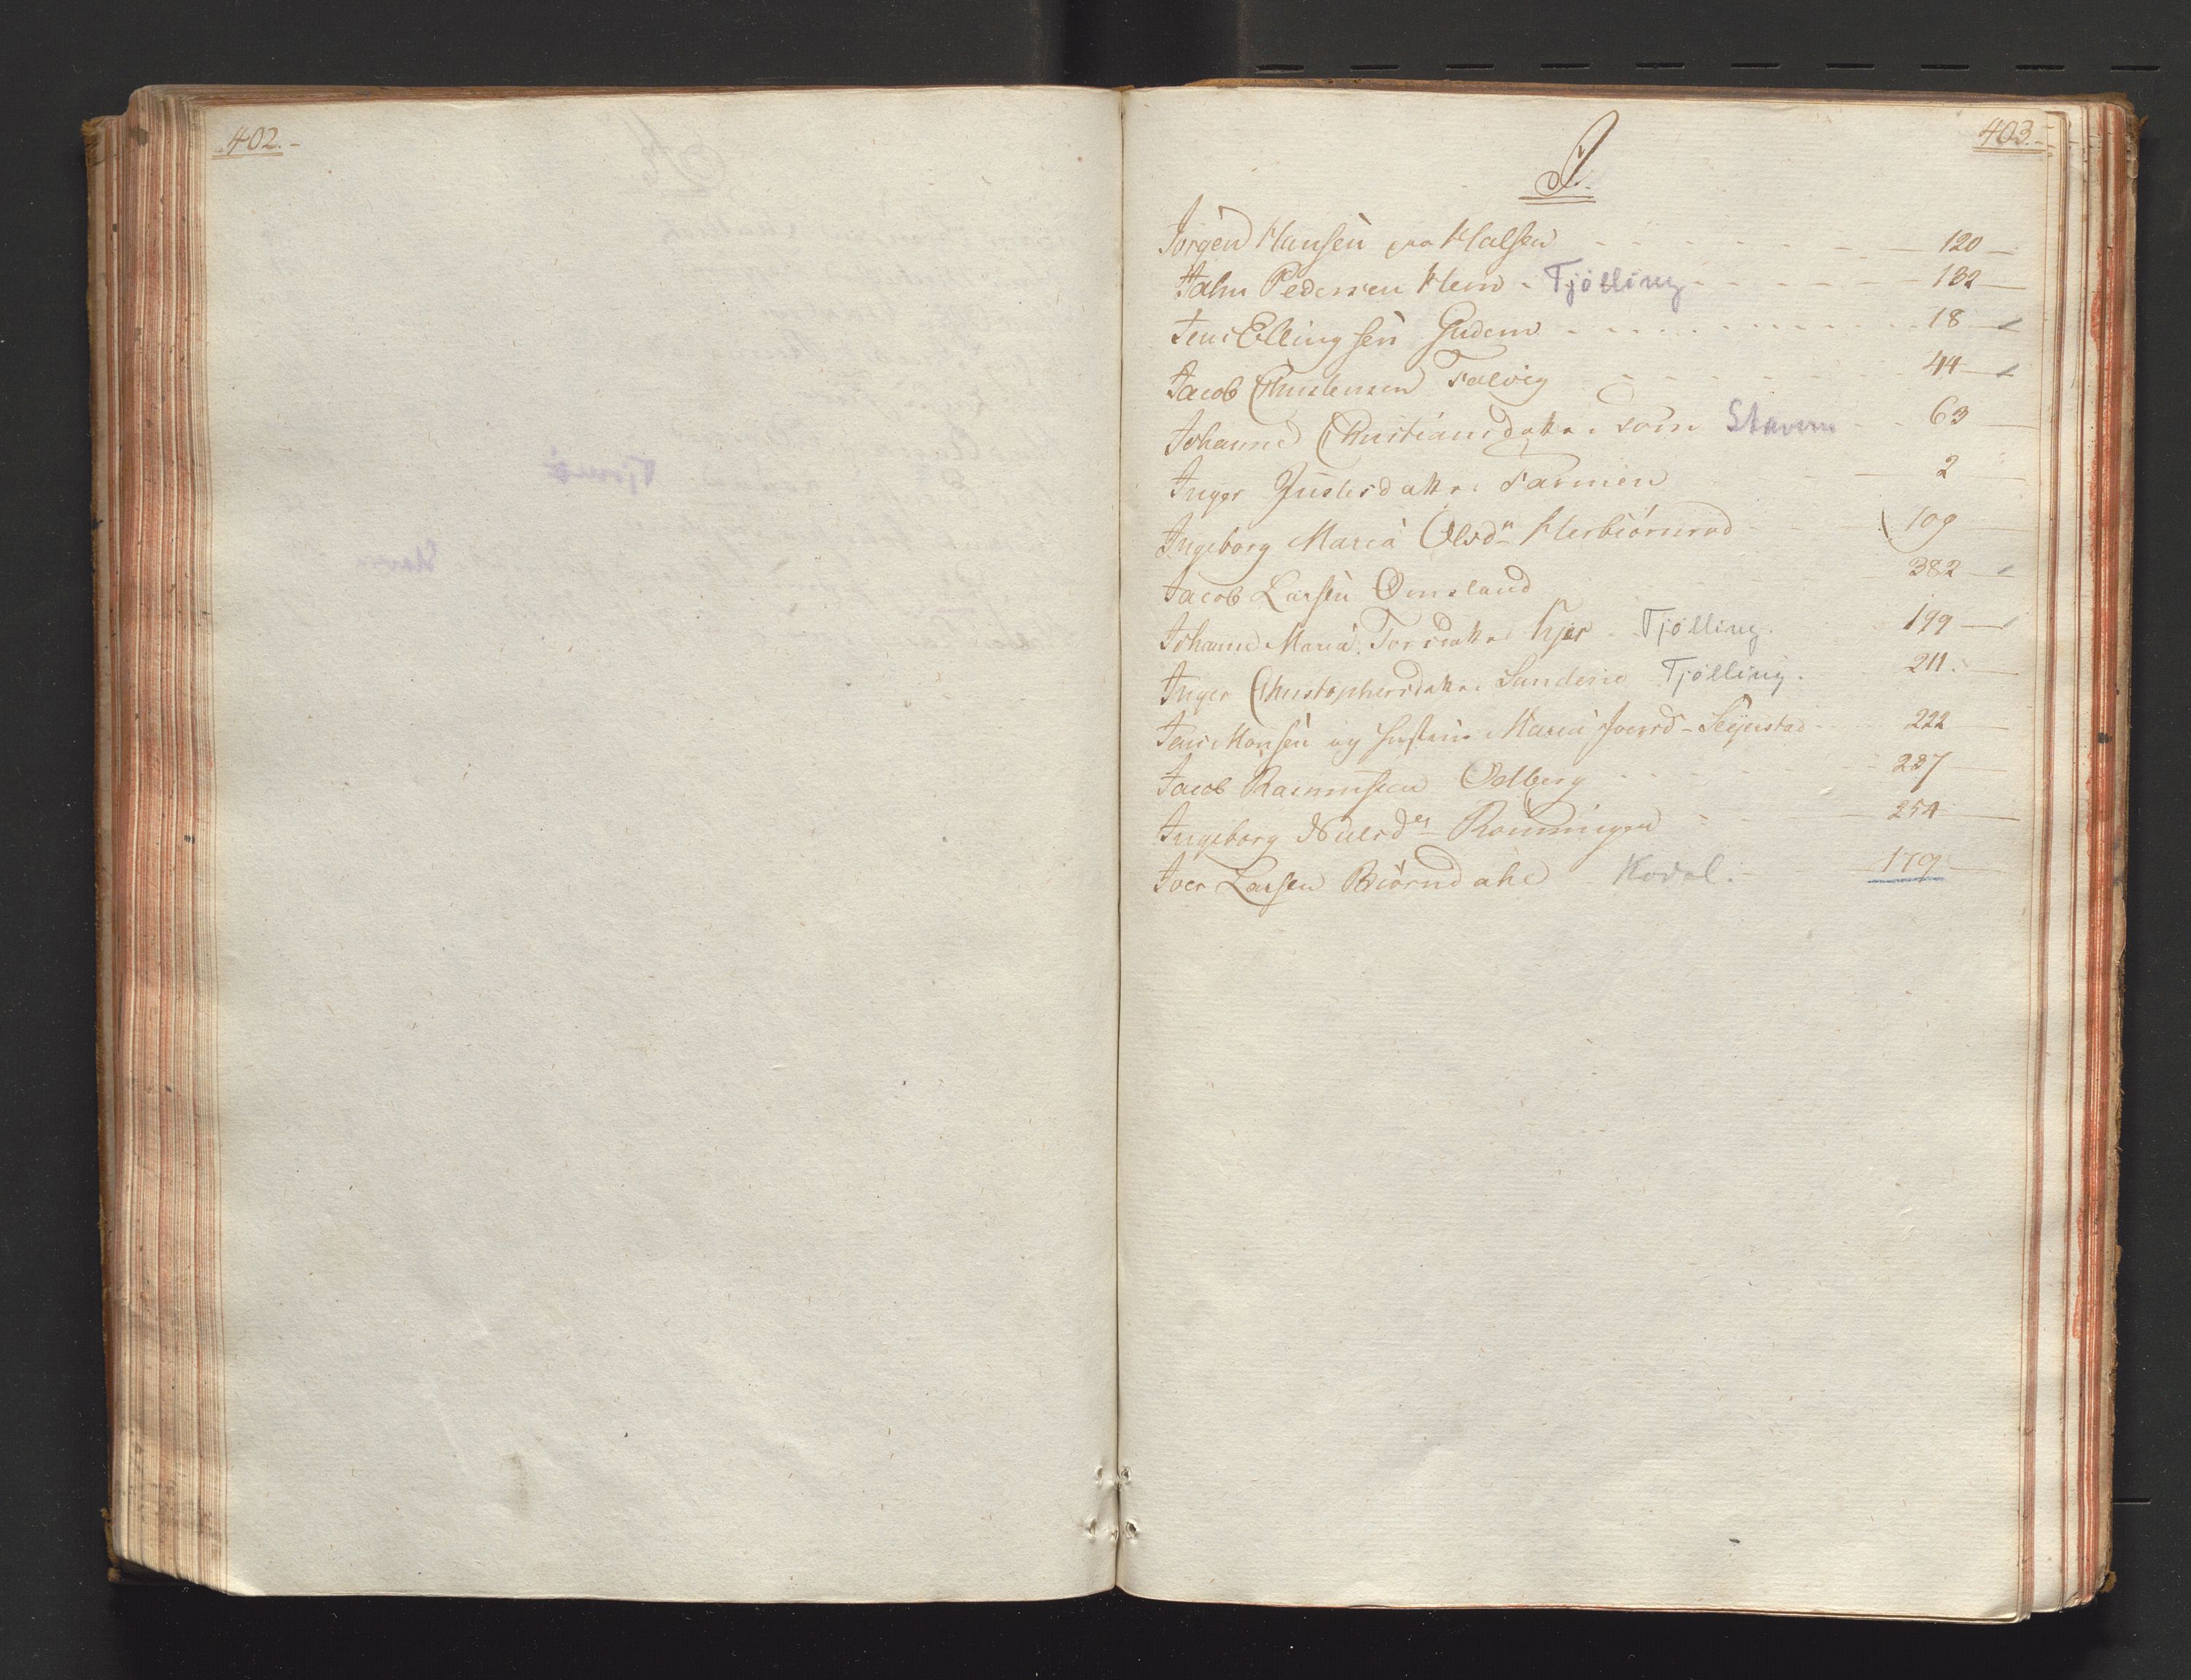 402.
403.
J.
Jörgen Hansen paa Halsen 120
Jahn Pedersen Hem Tjölling 132
Jens Ellingsen Gudem 18
Jacob Christensen Talvig 44
Johanne Christiansdatter Stavern 63
Inger Justisdatter Farmen 2
Ingeborg Maria Olsdr Herbiörnröd 109
Jacob Larsen Omsland 382
Johanne Maria Torsdatter Kjær Tjölling. 199
Inger Christophersdatter Sundene Tjölling. 211
Jens Monsen og Hustrue Maria Joensd Seijerstad 222
Jacob Rasmussen Odberg 237
Ingeborg Nielsdr Rönningen 254
Iver Larsen Biörndahl Kodal. 179